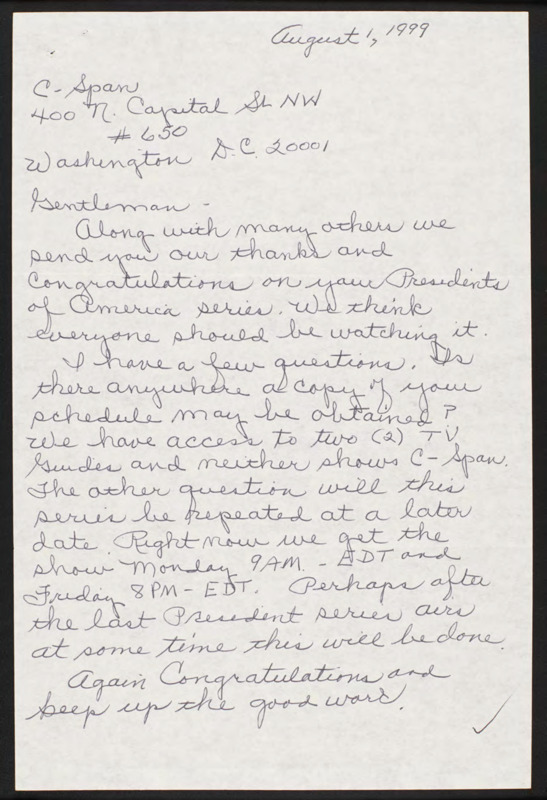 August 1, 1999
C-Span
400 N. Capital St. NW
# 650
Washington D.C. 20001
Gentleman -
Along with many others we
send you our thanks and
Congratulations on your Presidents
of America series. We think
everyone should be watching it.
I have a few questions. Is
there anywhere a copy of your
schedule may be obtained?
We have access to two (2) TV
Guides and neither shows C-Span.
The other question will this
series be repeated at a later
date. Right now we get the
show Monday 9AM. - EDT and
Friday 8PM - EDT. Perhaps after
the last President series airs
at some time this will be done.
Again Congratulations and
keep up the good work.